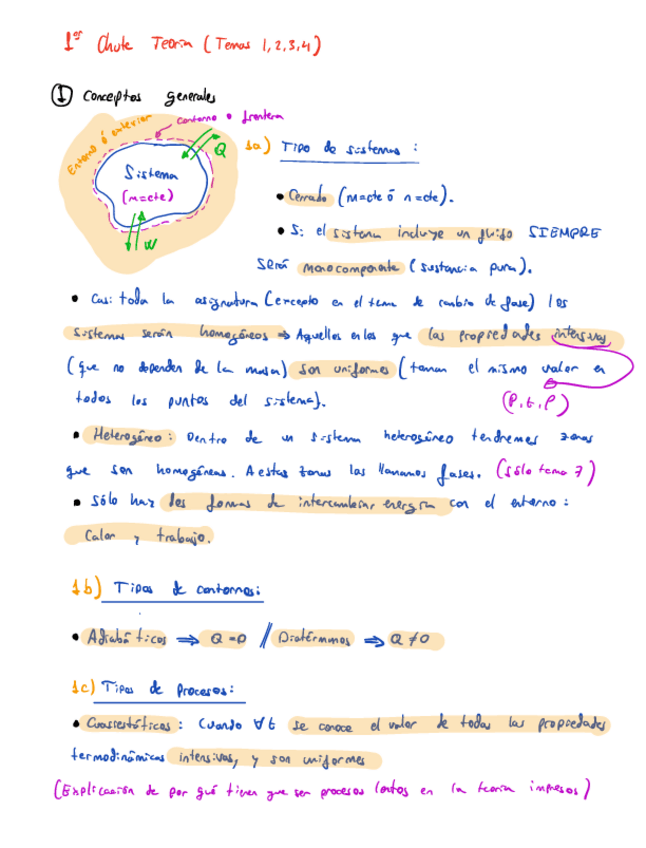 1er Chute Teoría (Temas 1,2,3,4)
① Conceptos generales
Entorno ó exterior
contorno o frontera
Q
Sistema
(m=cte)
W
1a) Tipo de sistemas :
• Cerrado (m=cte ó n=cte).
• Si el sistema incluye un fluido SIEMPRE
será monocomponente (sustancia pura).
• Casi toda la asignatura (excepto en el tema de cambio de fase) los
sistemas serán homogéneos ⇒ Aquellos en los que las propiedades intensivas
(que no dependen de la masa) son uniformes (toman el mismo valor en
todos los puntos del sistema).
(P,t,ρ)
• Heterogéneo: Dentro de un sistema heterogéneo tendremos zonas
que son homogéneas. A estas zonas las llamamos fases. (sólo tema 7)
• Sólo hay dos formas de intercambiar energía con el entorno :
Calor y trabajo.
1b) Tipos de contornos:
• Adiabáticos ⇒ Q=0 // Diatérmanos ⇒ Q≠0
1c) Tipos de Procesos:
• Cuasiestáticos : Cuando ∀t se conoce el valor de todas las propiedades
termodinámicas intensivas, y son uniformes
(Explicación de por qué tienen que ser procesos lentos en la teoría impresos)